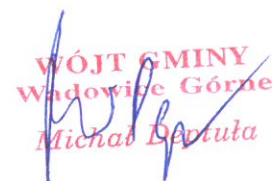 WÓJT GMINY
Wadowice Górne
Michał Deptuła